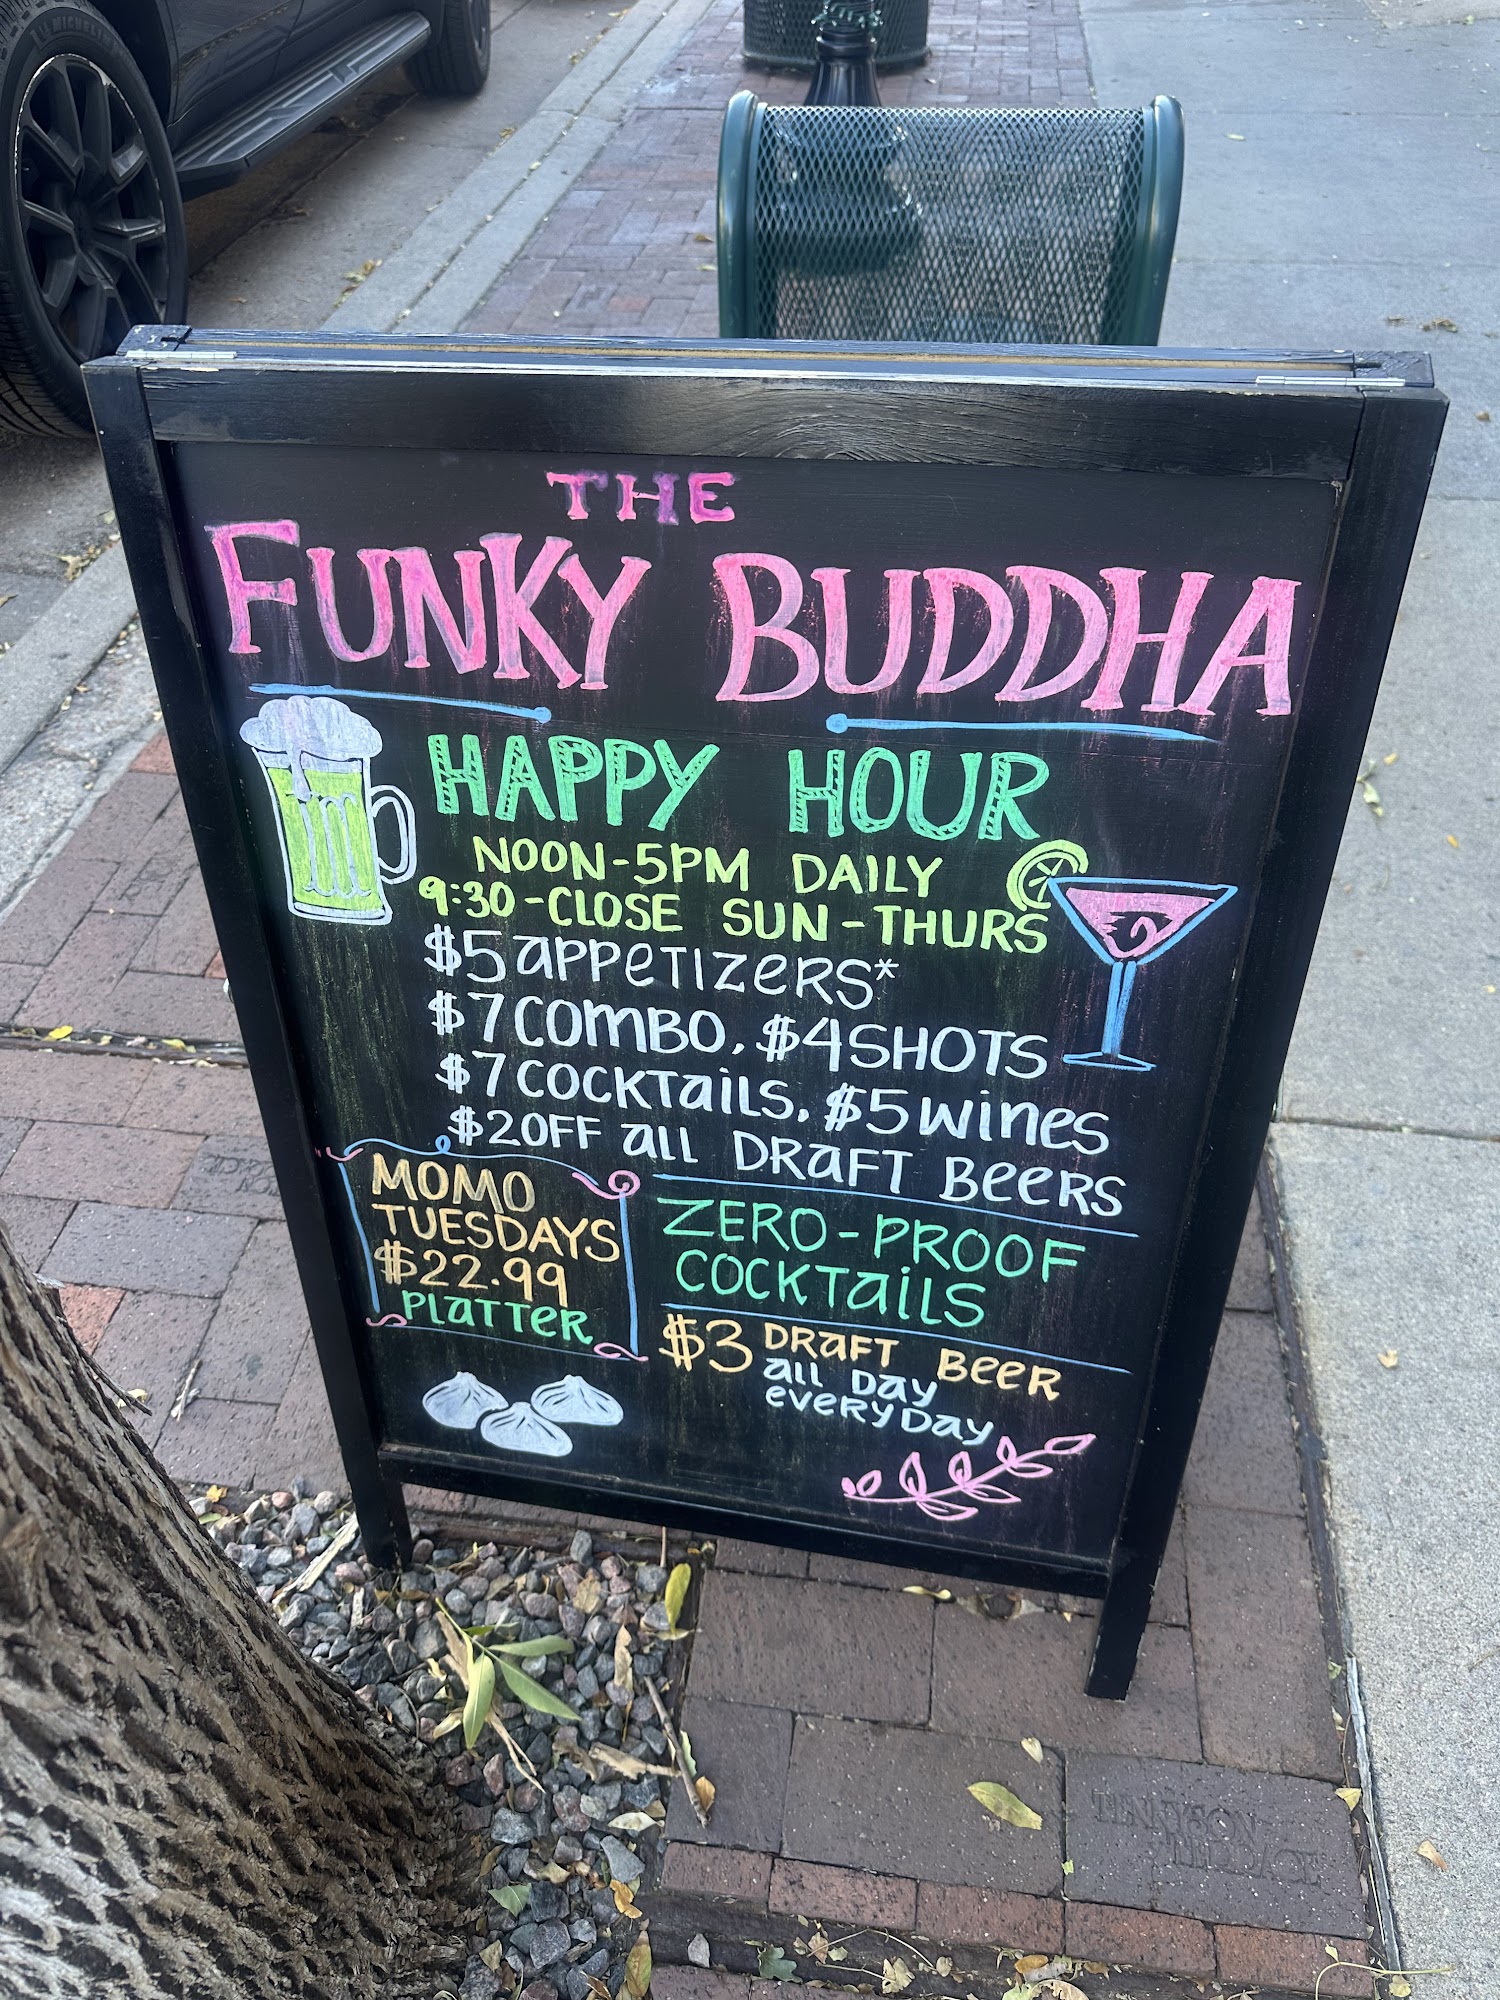 THE
FUNKY BUDDHA
HAPPY HOUR
NOON-5PM DAILY
9:30-CLOSE SUN-THURS
$5 APPETIZERS*
$7 COMBO, $4 SHOTS
$7 COCKTAILS, $5 WINES
$2 OFF ALL DRAFT BEERS
MOMO
TUESDAYS
$22.99
PLATTER
ZERO-PROOF
COCKTAILS
$3 DRAFT BEER
ALL DAY
EVERYDAY
MICHELIN